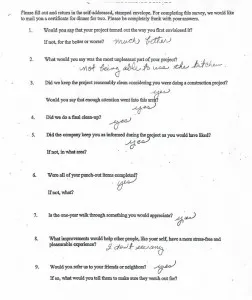 Please fill out and return in the self-addressed, stamped envelope. For completing this survey, we would like
to mail you a certificate for dinner for two. Please be completely frank with your answers.
1. Would you say that your project turned out the way you first envisioned it?
If not, for the better or worse? much better
2. What would you say was the most unpleasant part of your project?
not being able to use the kitchen
3. Did we keep the project reasonably clean considering you were doing a construction project?
yes
Would you say that enough attention went into this area?
yes
4. Did we do a final clean-up?
yes
5. Did the company keep you as informed during the project as you would have liked?
yes
If not, in what area?
6. Were all of your punch-out items completed?
yes
If not, what?
7. Is the one-year walk through something you would appreciate?
yes
8. What improvements would help other people, like yourself, have a more stress-free and
pleasurable experience?
I don't
9. Would you refer us to your friends or neighbors?
yes
If so, what would you tell them to make sure they watch out for?